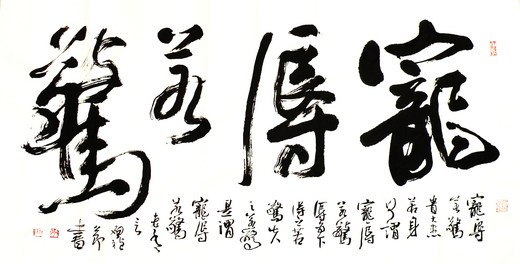 寵辱若驚
寵辱
若驚
貴大患
若身
何謂
寵辱
若驚
辱為下
得之若
驚失
之若驚
是謂
寵辱
若驚